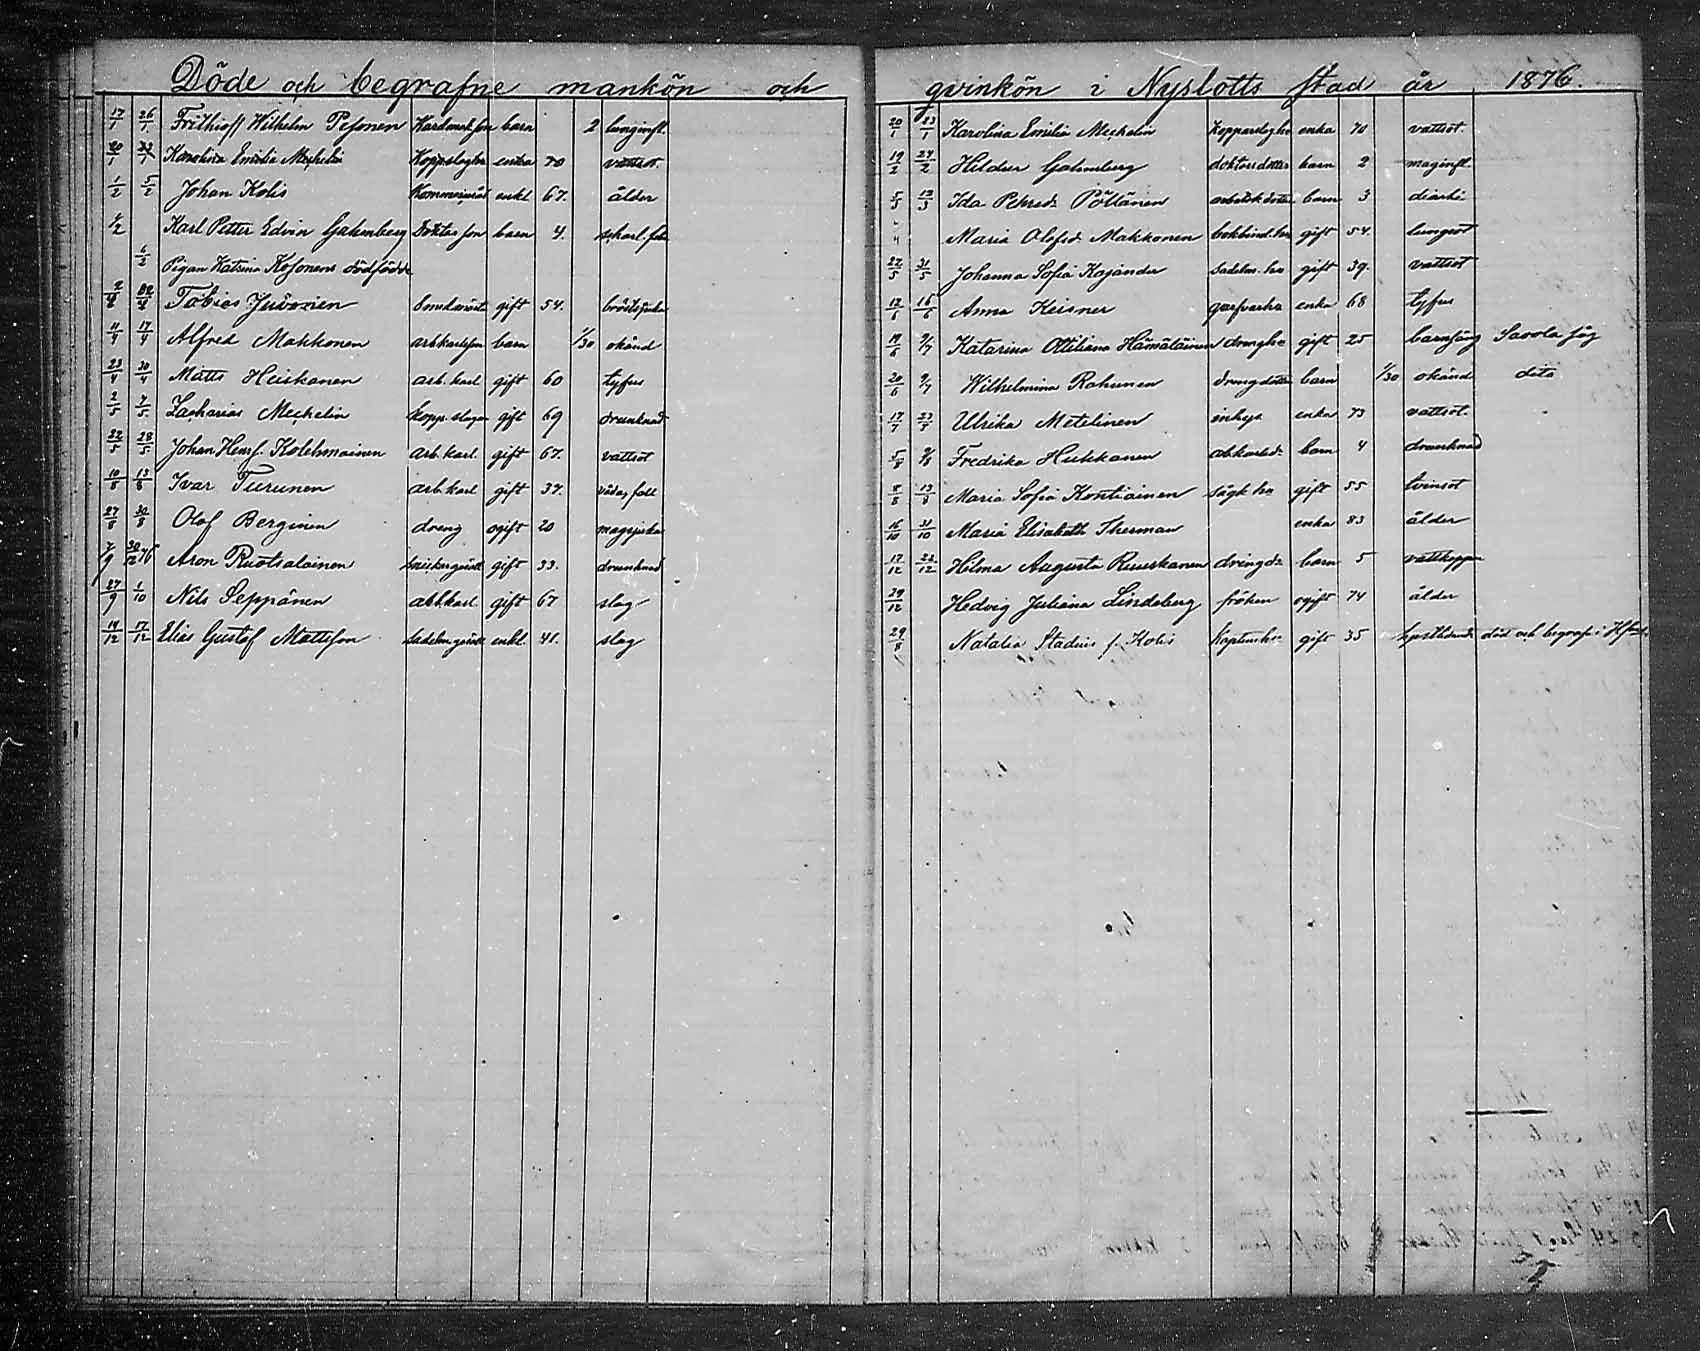 Döde och begrafne mankön och
17/1 26/1 Frithioff Wilhelm Pesonen barn 2 lunginfl.
20/1 23/1 Karolina Emilia Mechelin Kopparslaghr enka 70 vattsot.
1/2 5/2 Johan Kolis enkl 67. ålder
Karl Petter Edvin Gahmberg Doktor son barn 4. scharl. feb
6/2 Pigan Katrina Kosonens dödfödde
Tobias Juvonen gift 54.
11/4 17/4 Alfred Makkonen arbkarlsson barn 1/30 okänd
23/4 30/4 Matts Heiskanen arb. karl gift 60 tyfus
2/5 7/5 Zacharias Mechelin kopp. slagar gift 69 drunknad
22/5 28/5 Johan Henr. Kolehmainen arb. karl. gift 67. vattsot
10/8 13/8 Ivar Turunen arb. karl gift 37. våda, fall
27/8 30/8 Olof Berginen dreng ogift 20 magsjuka
7/9 30/12 76 Aron Ruotsalainen gift 33. drunknad
27/9 1/10 Nils Seppänen arb.karl. gift 67 slag
14/12 17/12 Elias Gustaf Mattsson enkl. 41. slag
qvinkön i Nyslotts stad år 1876.
20/1 23/1 Karolina Emilia Mechelin kopparslaghr enka 70 vattsot.
19/2 27/2 Hildur Gahmberg doktorsdotter barn 2 maginfl.
5/3 12/3 Ida Petrsdr Pöllänen arbetsk. dotter barn 3 diarhé
Maria Olofsd. Makkonen bokbind. hu gift 54. lungsot
22/5 31/5 Johanna Sofia Kajander sadelm. hu gift 39. vattsot
Anna Keisner enka 68 tyfus
19/6 2/7 Katarina Ottiliana Hämäläinen drenghu gift 25 barnsäng Savola såg
20/6 2/7 Wilhelmina Rahunen drengdotter barn 1/30 okänd dito
17/7 23/7 Ulrika Metelinen inhys enka 73 vattsot.
5/8 9/8 Fredrika Hukkanen abkarlsd. barn 4 drunknad
8/8 13/8 Maria Sofia Kontiainen sågk hu gift 55 tvinsot
16/10 31/10 Maria Elisabeth Therman enka 83 ålder
17/12 22/12 Hilma Augusta Ruuskanen drengdr barn 5 vattkoppor
29/12 Hedvig Juliana Lindeberg fröken ogift 74 ålder
29/8 Natalia Stadius f. Kolis Kaptenshu gift 35 död och begrafv i Hfors.